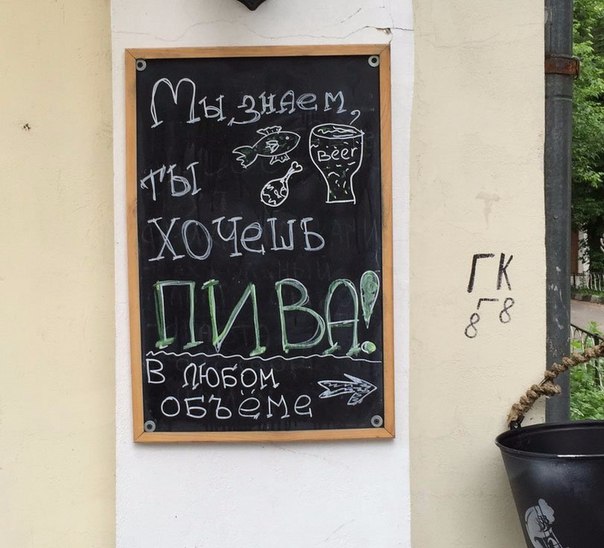 Мы знаем,
Beer
ты
хочешь
ПИВА!
В любом
объёме
ГК
8 Г 8